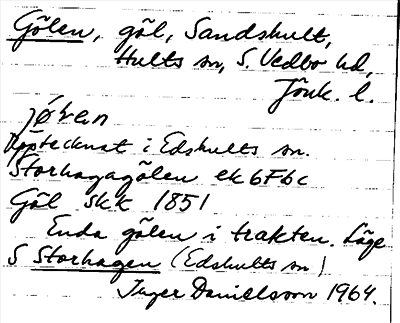 Gölen, göl, Sandshult,
Hults sn, S. Vedbo hd,
Jönk. l.
jø̀ran
Upptecknat i Edshults sn.
Storhagagölen ek 6F6c
Göl skk 1851
Enda gölen i trakten. Läge
S Storhagen (Edshults sn)
Inger Danielsson 1964.